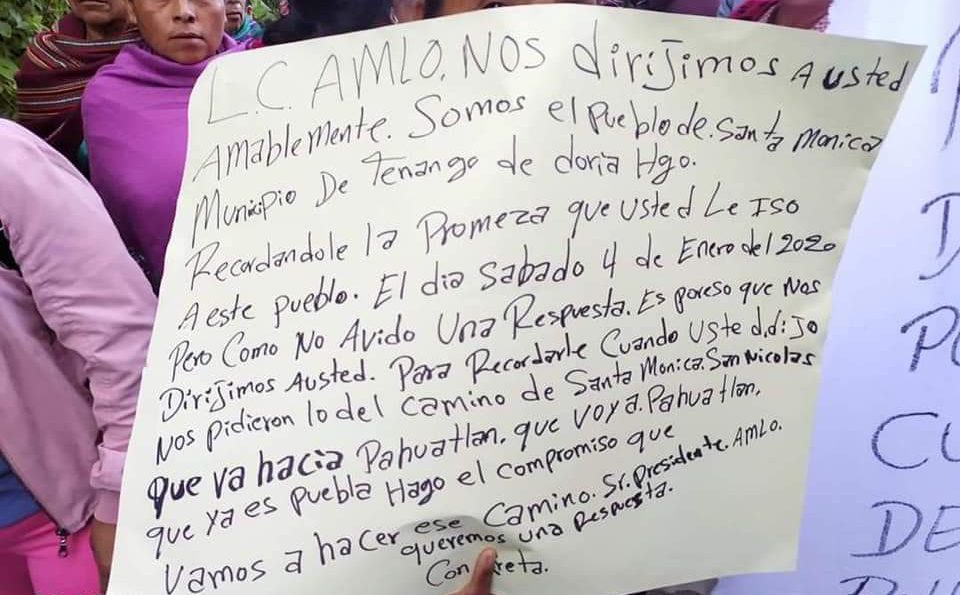 L.C. AMLO. NOS dirijimos A usted
Amablemente. Somos el Pueblo de. Santa Monica
Municipio De Tenango de doria Hgo.
Recordandole la Promeza que usted Le ISO
A este pueblo. El dia Sabado 4 de Enero del 2020
Pero Como No Avido Una Respuesta. Es poreso que Nos
Dirijimos Austed. Para Recordarle Cuando Usted.dijo
Nos pidieron lo del camino de Santa Monica. San Nicolas
que va hacia Pahuatlan. que voy a. Pahuatlan.
que ya es puebla Hago el compromiso que
Vamos a hacer ese Camino. Sr. presidente. AMLO.
queremos una Respuesta.
D
PO
CU
DE